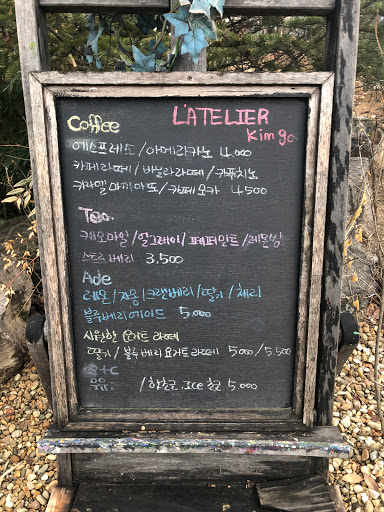 L'ATELIER
Kim go
Coffee
에스프레소/아메리카노 4,000
카페라떼/바닐라라떼/카푸치노
카라멜마끼아또/카페모카 4,500
Tea.
캐모마일/얼그레이/페퍼민트/레몬밤
스트로베리 3,500
Ade
레몬/자몽/크랜베리/딸기/체리
블루베리에이드 5,000
시원한 요거트 라떼
딸기/블루베리 요거트라떼 5,000/5,500
etc
/핫초코. Ice초코 5,000